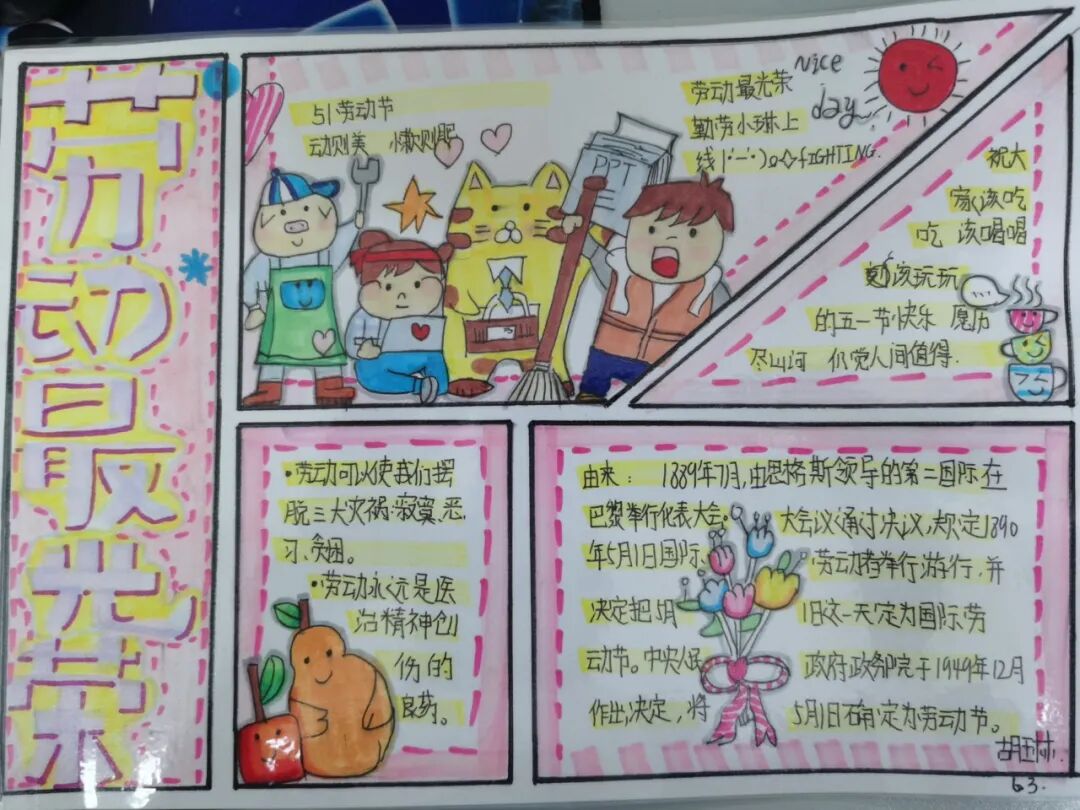 劳动最光荣
51劳动节
动则美 懒则肥
劳动最光荣
勤劳小琳上
线 FIGHTING.
Nice
day~
PPT
祝大
家该吃
吃 该喝喝
该玩玩
的五一节快乐 愿历
尽山河 仍觉人间值得.
·劳动可以使我们摆
脱三大灾祸:寂寞、恶
习、贫困。
·劳动永远是医
治精神创
伤的
良药。
由来: 1889年7月,由恩格斯领导的第二国际在
巴黎举行代表大会。 大会议通过决议,规定1890
年5月1日国际 劳动者举行游行,并
决定把5月 1日这一天定为国际劳
动节。中央人民 政府政务院于1949年12月
作出决定,将 5月1日确定为劳动节。
胡琳
63.